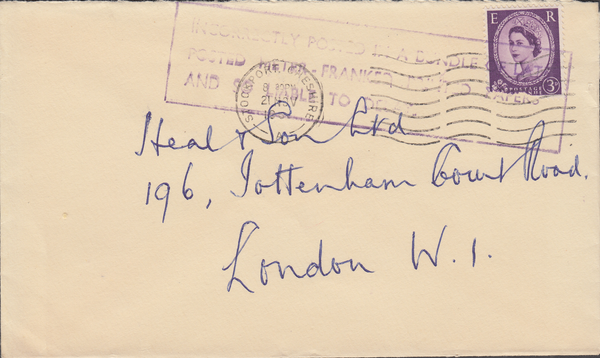 INCORRECTLY POSTED IN A BUNDLE OF
POSTED METER FRANKED
AND LIABLE TO
E R
POSTAGE
3D
STOCKPORT CHESHIRE
Heal & Son Ltd
196, Tottenham Court Road.
London W.1.